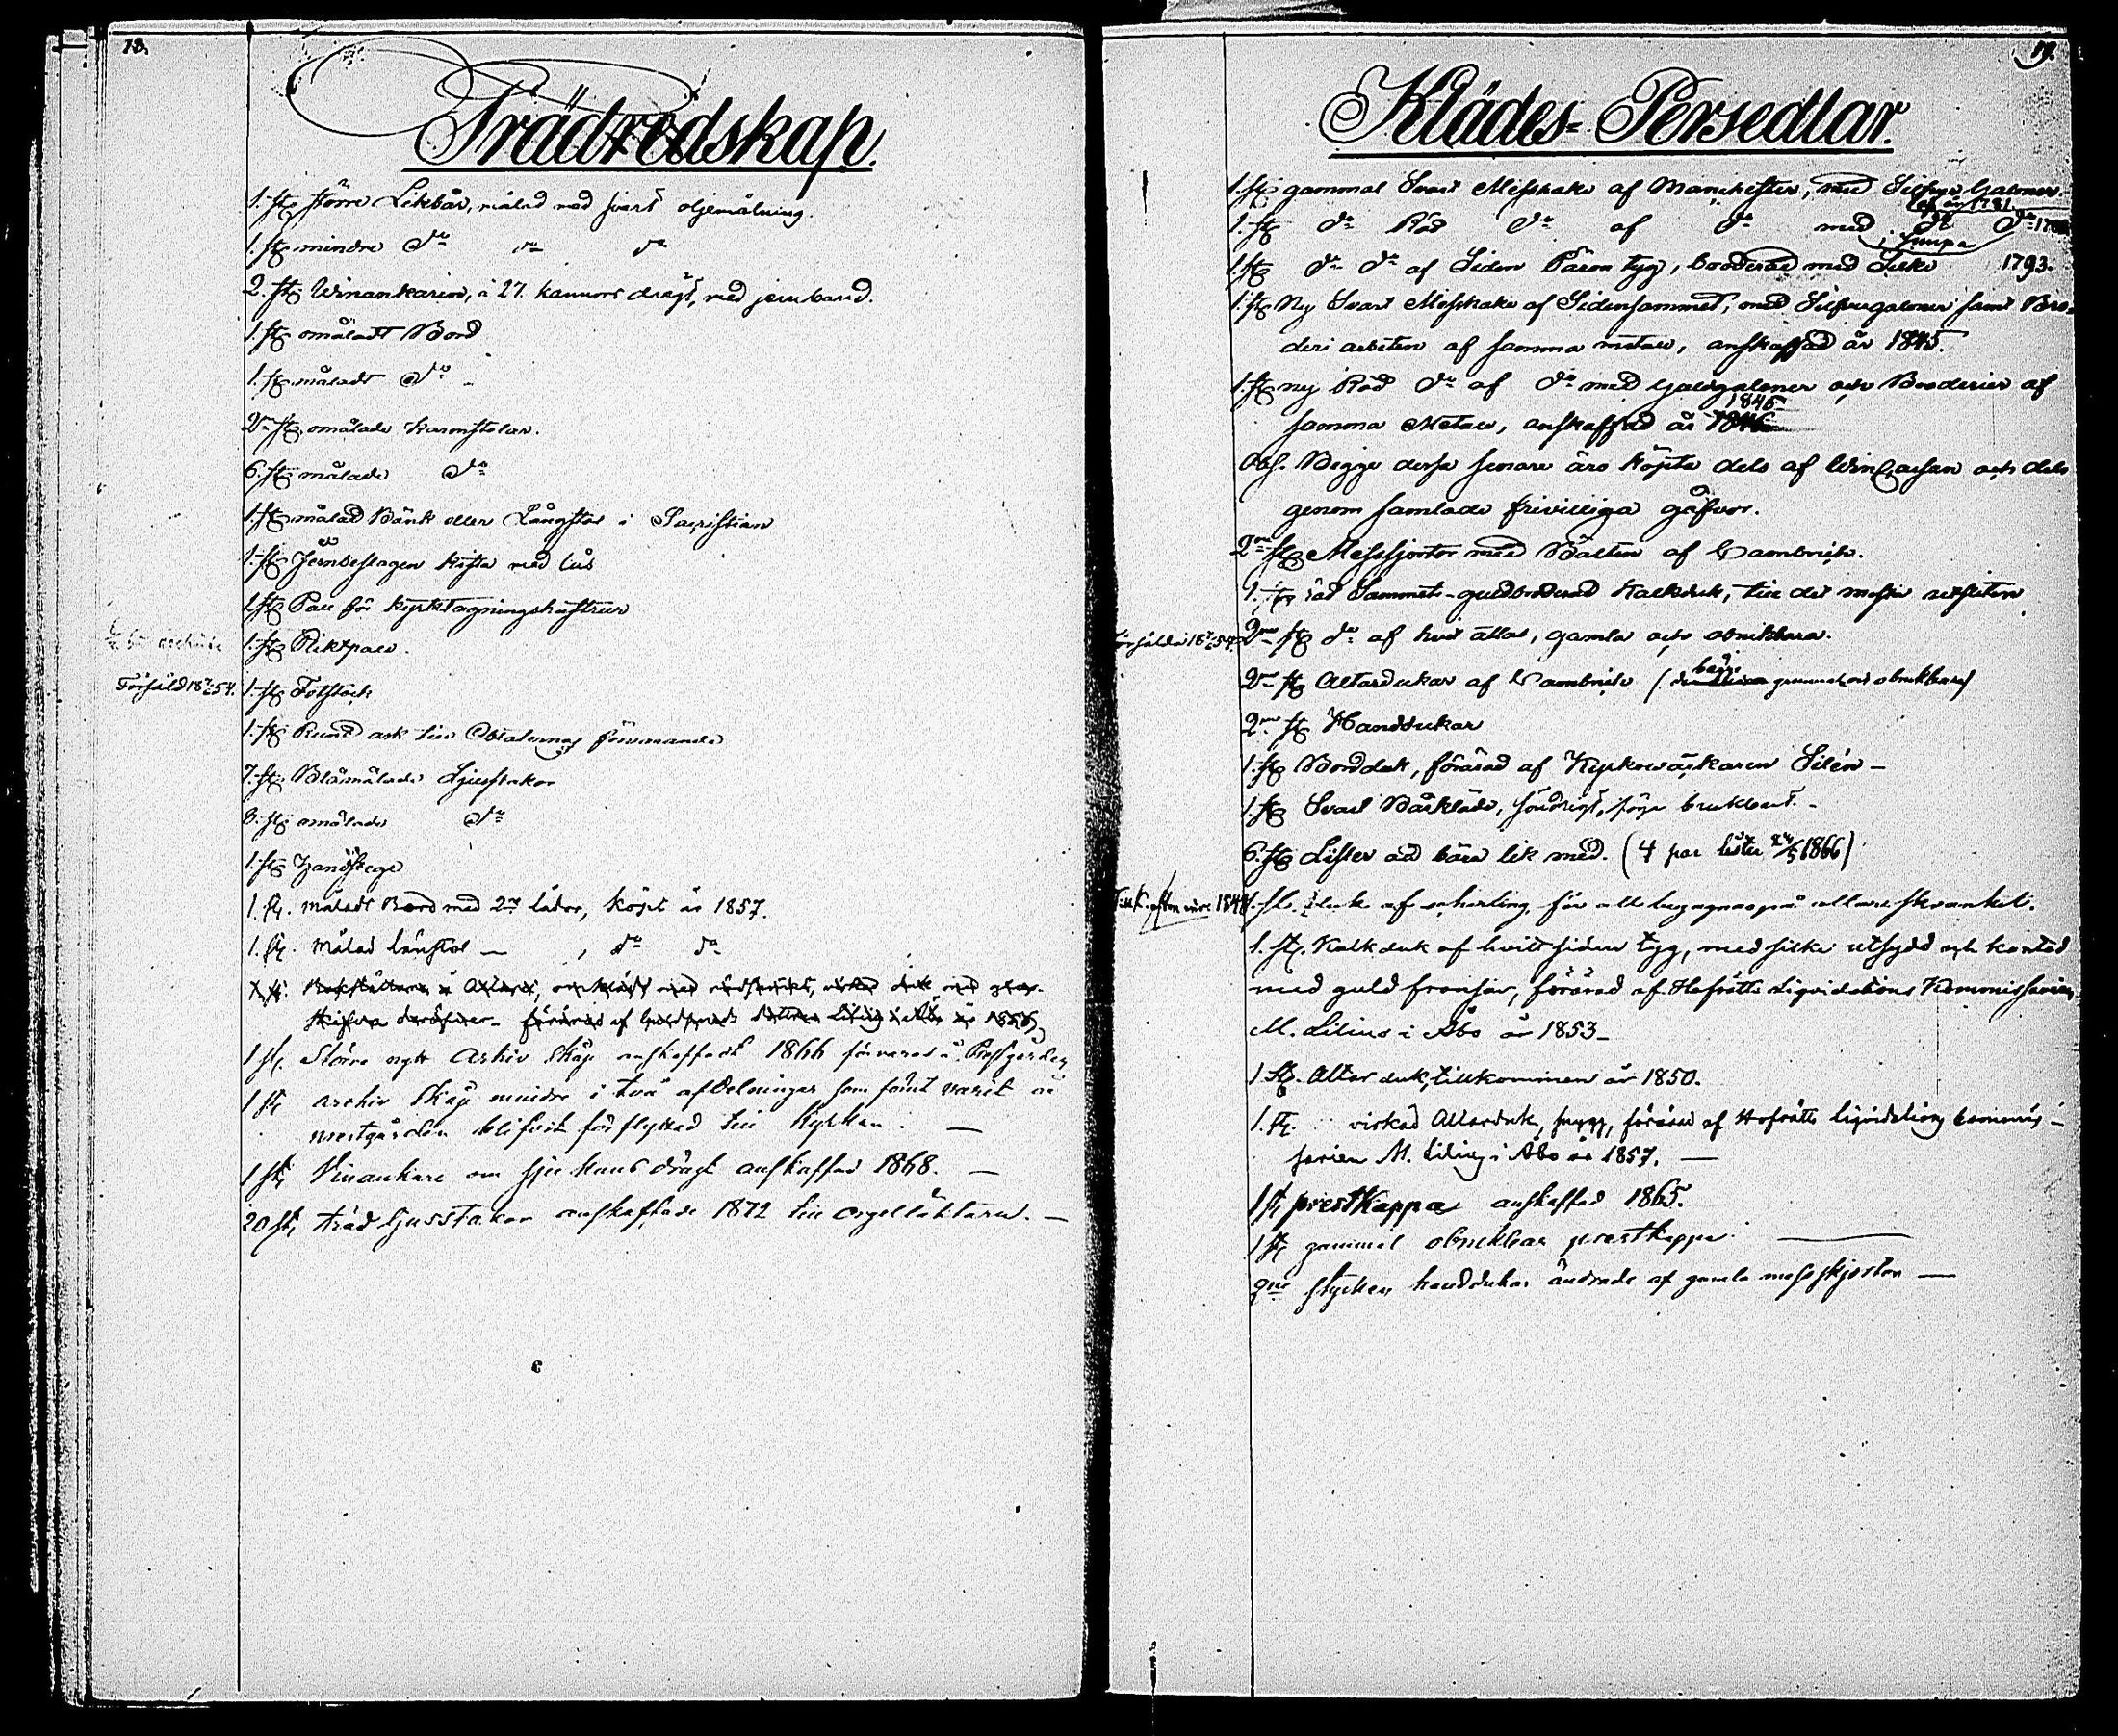 13.
Trädredskap.
1. st. större Likbår, målad med svart oljemålning.
1. st. mindre d:o d:o d:o
2. st. Winankaren, à 27. kannors drägt, med jernband.
1. st. omåladt Bord
1. st. måladt d:o
2:ne st. omålade Karmstolar.
6. st. målade d:o
1. st. målad Bänk eller Långstol i Sacristian
1. st. Jernbeslagen Kista med lås
1. st. Pall för kyrktagningshustrur
1. st. Pliktpall.
Försåld 18 54. 1. st. Fotstock
1. st. Rund ask till Oblaternas förvarande
7. st. Blåmålade Ljusstakar
8. st. omålade d:o
1. st. Handstege
1. st. måladt Bord med 2:ne lådor, köpt år 1857.
1. st. Målad länstol — , d:o d:o
1 st. Större nytt Arkiv Skåp anskaffadt 1866 förvaras å Prestgården
1 st. archiv Skåp mindre i två afdelningar som förut varit å
prestgården blifvit förflyttad till Kyrkan. —
1 st. Vinankare om sju kannors drägt anskaffad 1868. —
20 st. träd ljusstakar anskaffade 1872 till orgelläktarn. —
19.
Klädes-Persedlar.
1. st. gammal Svart Messhake af Manchester, med Silfver Galoner.
af år 1781.
1. st. d:o Röd d:o af d:o med d:o d:o
1. st. d:o d:o af Siden Päron tyg, broderad med Silke 1793.
1. st. Ny Svart Messhake af Sidensammet, med Silfvergaloner samt Bro-
deri arbeten af samma metall, anskaffad år 1845.
1. st. ny Röd d:o af d:o med Guldgaloner och Broderier af
1845
samma Metall, anskaffad år 1846
Obs. Begge dessa senare äro köpta dels af Wincassan och dels
genom samlade frivilliga gåfvor.
2:ne st. Messsjortor med Bälten af Cambrick.
1. st. röd Sammets-guldbroderad Kalkduk, till det mesta utsliten
Försålda 18 54. 2:ne st. d:o af hvit atlas, gamla och obrukbara.
begge
2:ne st. Altardukar af Cambrick ( gamla och obrukbara)
2:ne st. Handdukar
1. st. Bordduk, förärad af Kyrkowäktaren Silén —
1. st. Svart Bårkläde, söndrigt, föga brukbart. —
6. st. Lister att bära lik med. (4 par lister 24/5 1866)
1848 1. st. duk af scherting, för att begagnas på altare skranket.
1. st. Kalkduk af hvitt siden tyg, med silke utsydd och kantad
med guld fransar, förärad af Hofrätts Liqvidations Kommissarien
M. Lilius i Åbo år 1853 —
1 st. Altar duk, tillkommen år 1850.
1. st. virkad Altarduk, snygg, förärad af Hofrätts liqvidations commis-
sarien M. Lilius i Åbo år 1857. —
1 st. prestkappa anskaffad 1865.
1 st. gammal obrukbar prestkappa. —
2:ne stycken handdukar ändrade af gamla messskjortor —